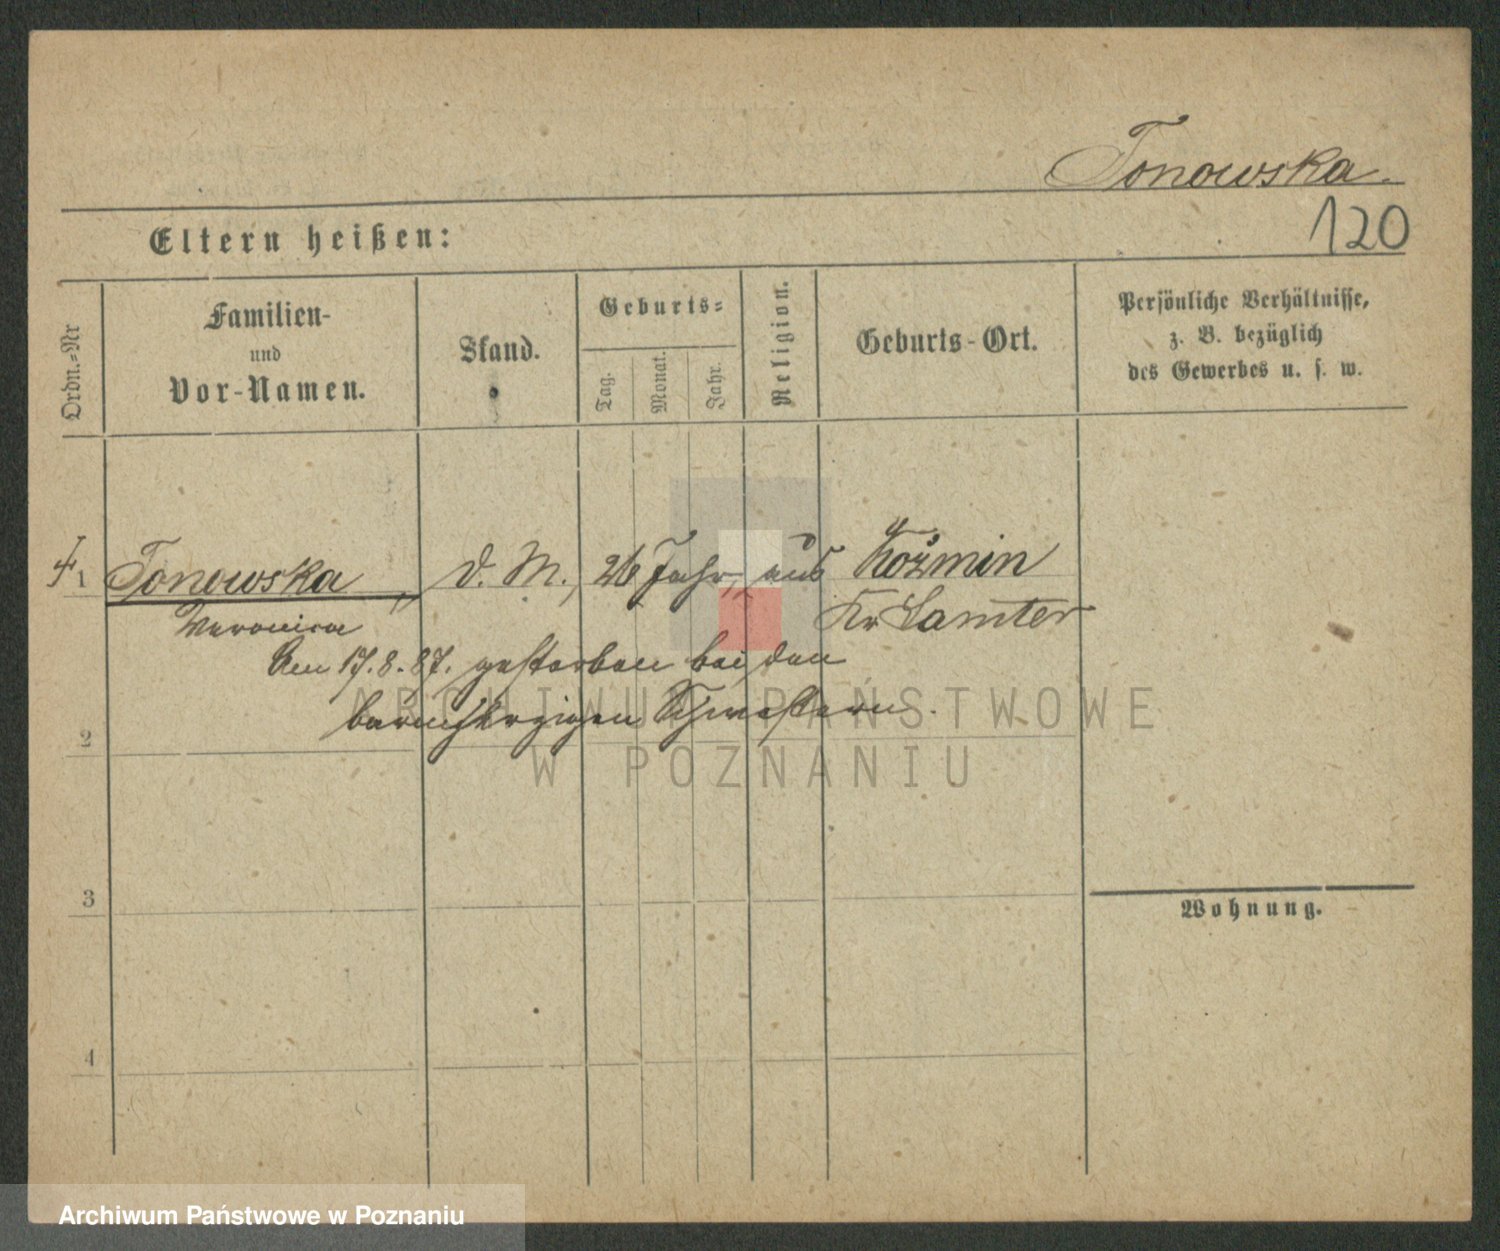 Tonowska.
120
Eltern heißen:
Ordn.=Nr
Familien-
und
Vor-Namen.
Stand.
Geburts=
Tag.
Monat.
Jahr.
Religion.
Geburts-Ort.
Persönliche Verhältnisse,
z. B. bezüglich
des Gewerbes u. s. w.
1 Tonowska, D. M., 26 Jahr, aus Koźmin
Veronica
Kr Samter
Am 17.8.87. gestorben bei den
barmherzigen Schwestern.
ARCHIWUM PAŃSTWOWE
W POZNANIU
2
3
Wohnung.
4
Archiwum Państwowe w Poznaniu